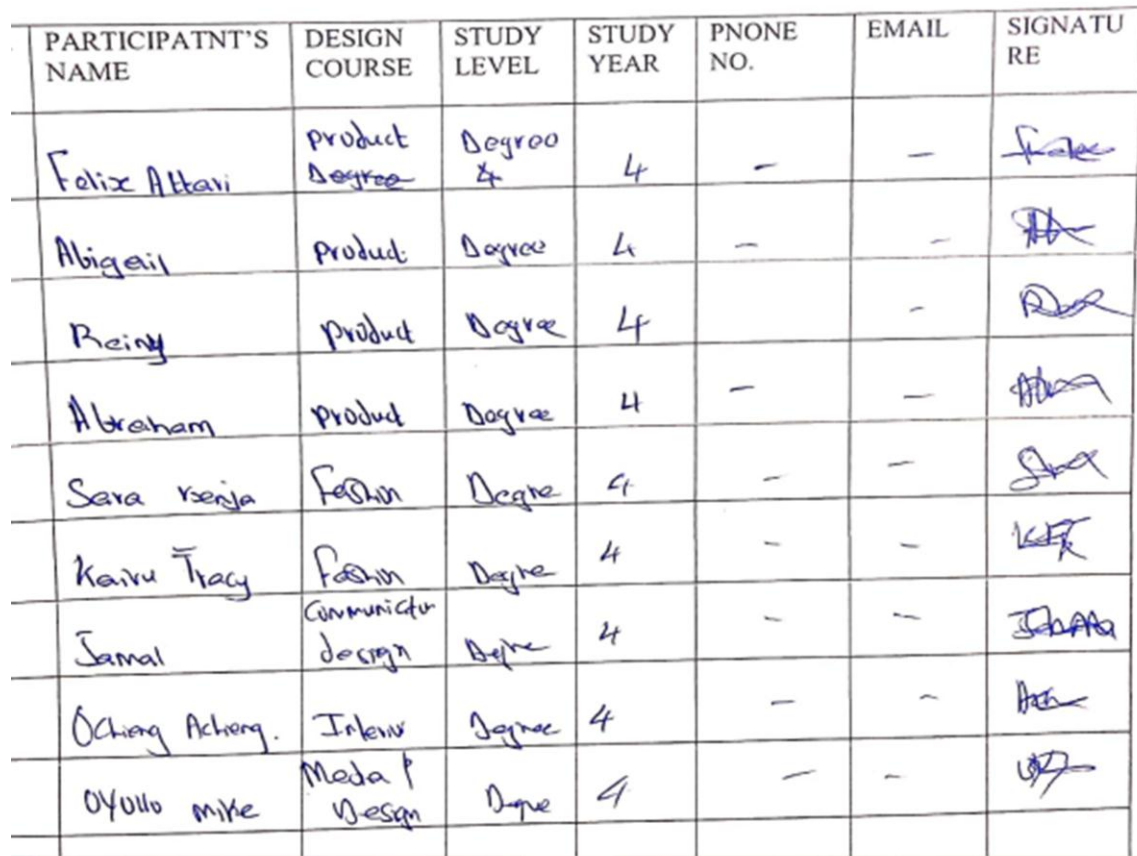 PARTICIPATNT'S NAME DESIGN COURSE STUDY LEVEL STUDY YEAR PNONE NO. EMAIL SIGNATU RE
Felix Attari product Degree Degree 4 4 - -
Abigail product Degree 4 - -
Reiny product Degree 4 -
Abraham product Degree 4 - -
Sara Fashin Degre 4 - -
Kairu Tracy Fashin Degre 4 - -
Jamal design 4 - -
Ochieng Achieng. Degree 4 - -
OYUllo mike Design 4 - -